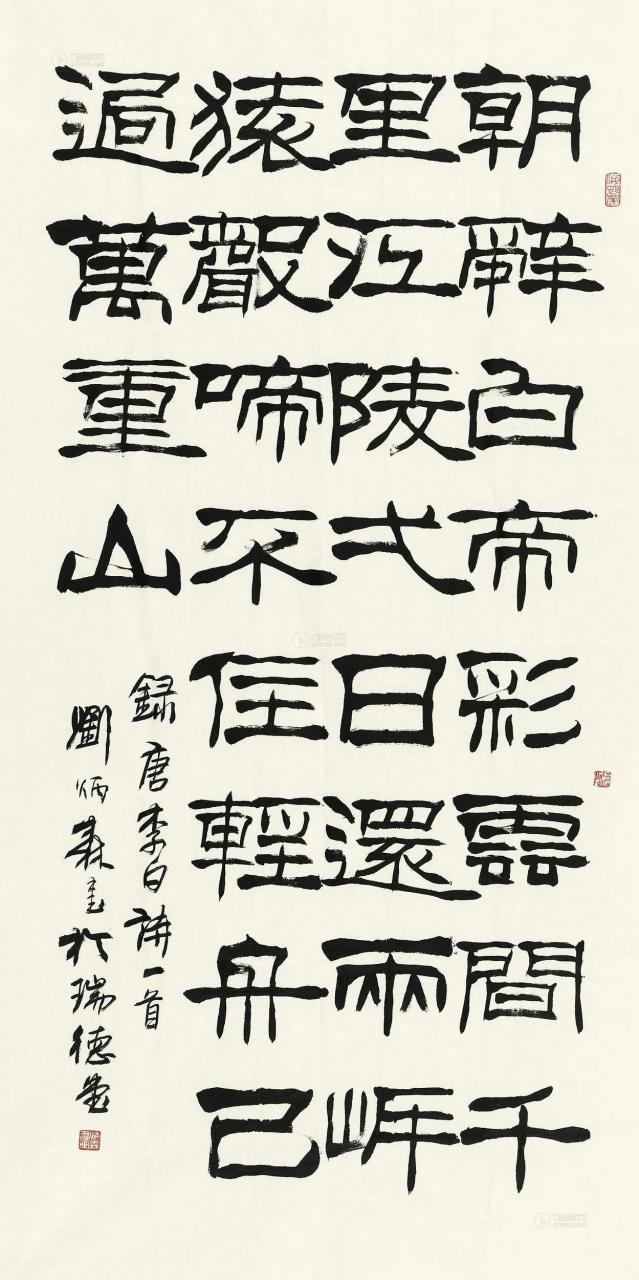 朝辭白帝彩雲間千
里江陵弌日還兩岸
猿聲啼不住輕舟已
過萬重山
錄唐李白詩一首
劉炳森書於瑞德堂